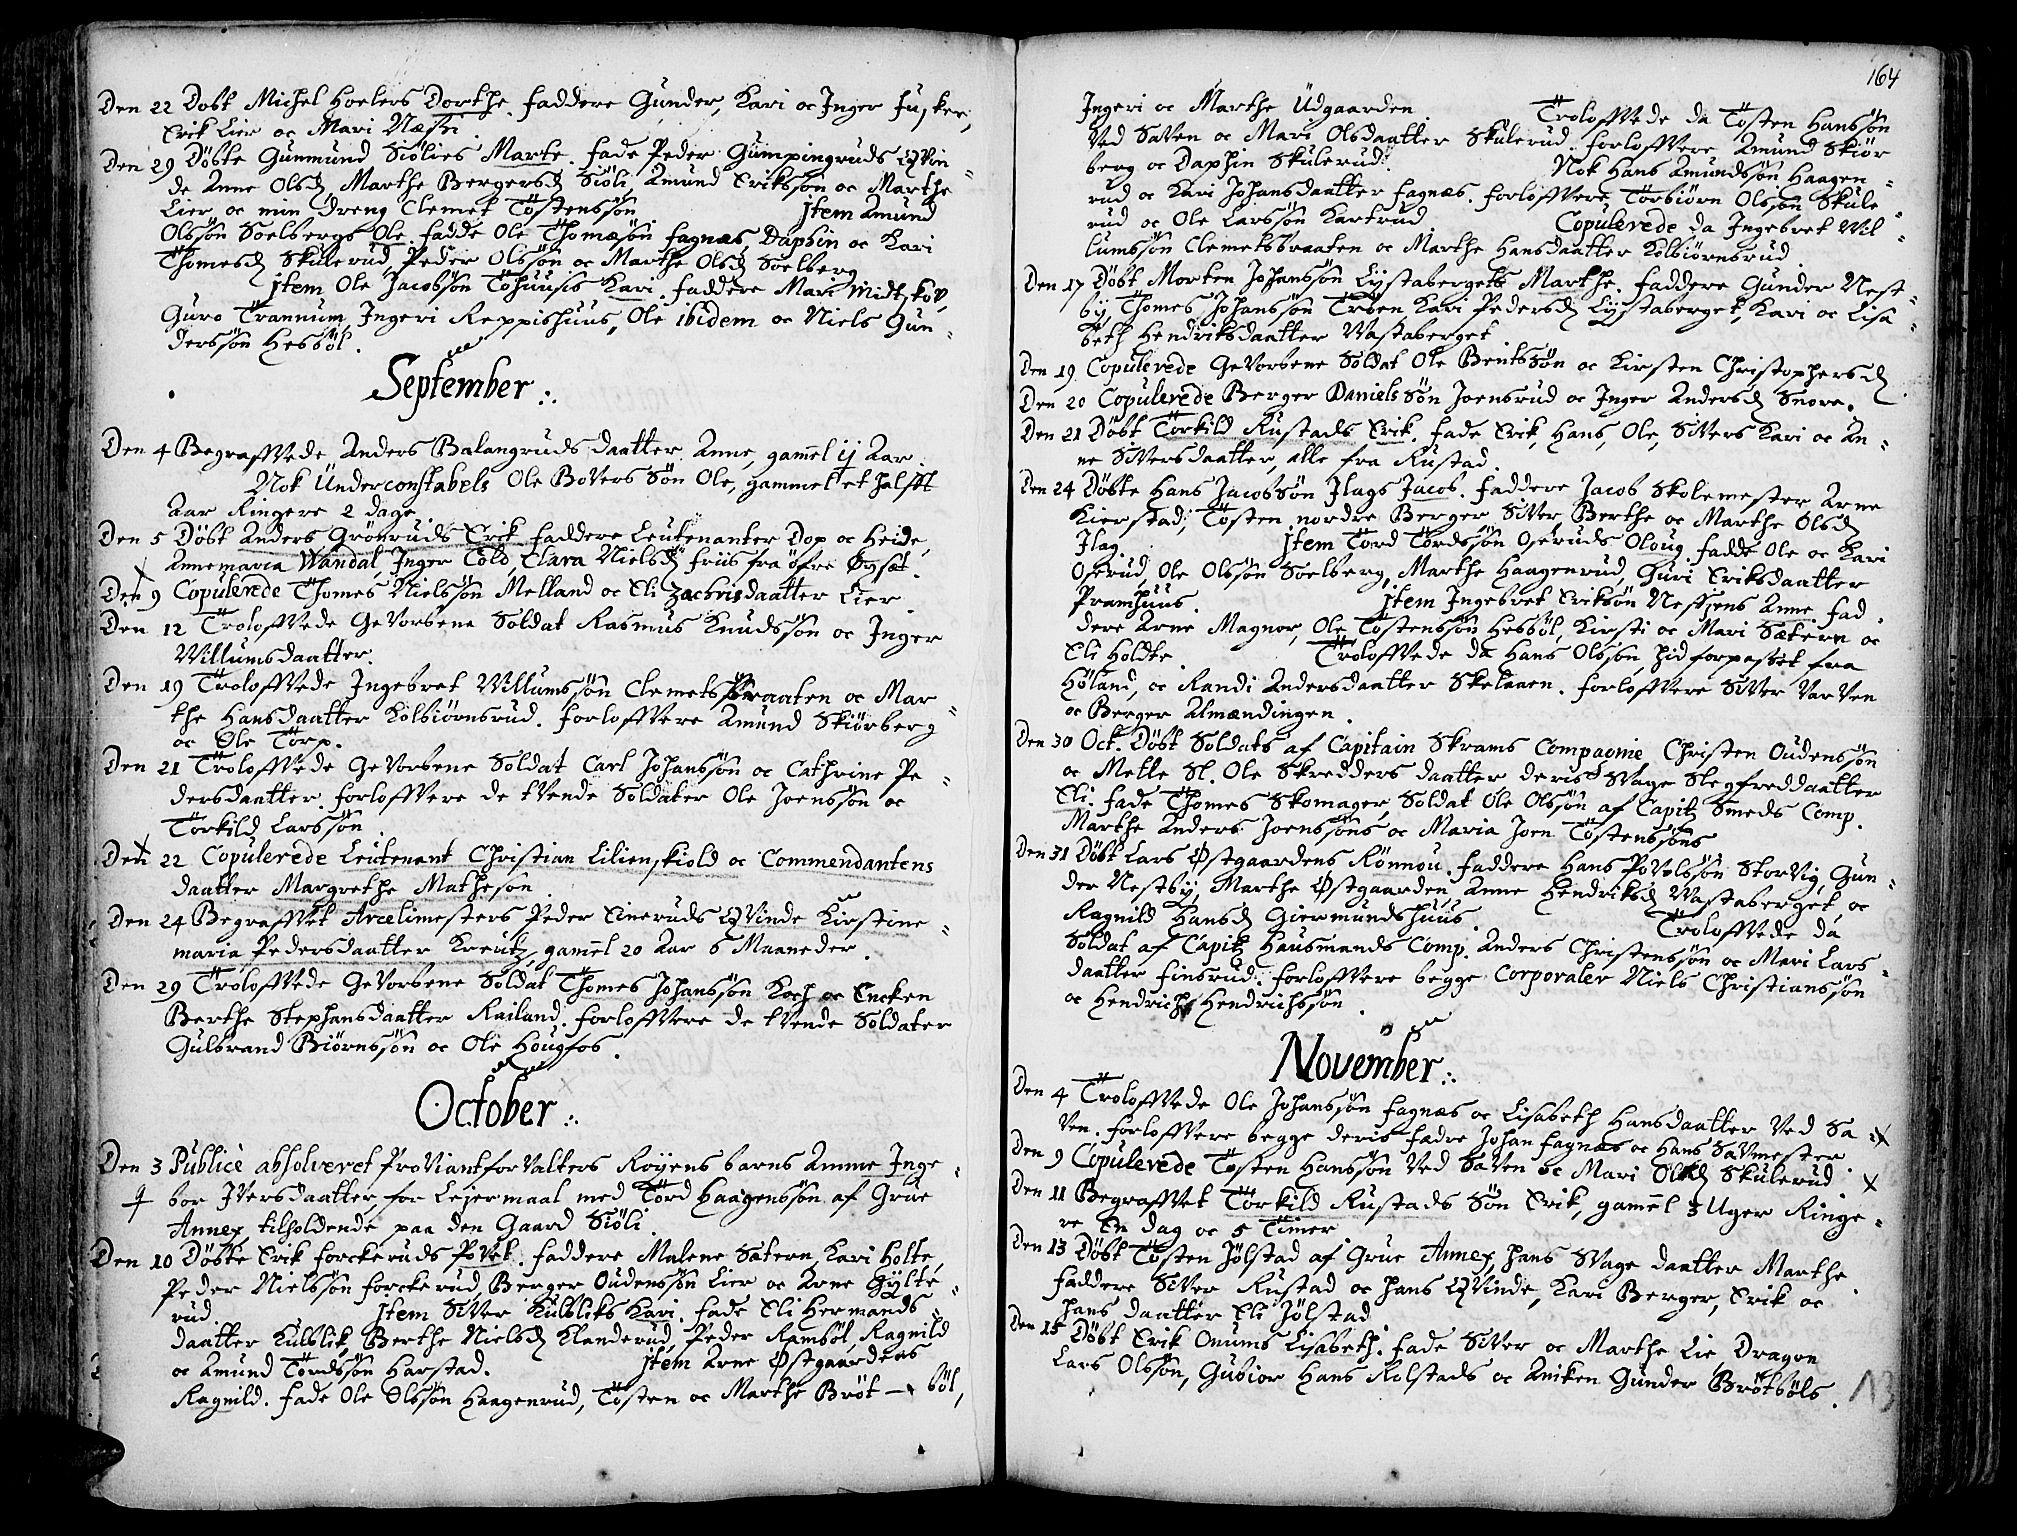 Den 22 Døbt Michel Hoelers Dorthe. faddere Gunder, Kari oc Inger Fusker,
Erik Lier oc Mari Næste.
Den 29 Døbte Gunmund Siölies Marte. fadd. Peder Gumpingruds Qvin=
de Anne Olsd. Marthe Bergersd. Siöli, Amund Erikssön oc Marthe
Lier oc min dreng Clemet Töstenssön        jtem Amund
Olssön Soelbergs Ole. fadde Ole Thomæsön fagnæs, Daphin oc Kari
Thomesd. Skulerud, Peder Olssön oc Marthe Olsd. Soelberg
jtem Ole Jacobsön Töhuusis Kari. faddere Mari Midtskov,
Guro Trannum, Ingeri Reppishuus, Ole ibidem oc Niels Gun=
derssön Hesböl.
September
Den 4 Begraffvede Anders Balangruds daatter Anne, gamel ij Aar.
Nok Underconstabels Ole Bovers Sön Ole, gammel et halfft
Aar Ringere 2 dage.
Den 5 Döbt Anders Grönruds Erik. faddere Leutenanter Dop oc Heide,
Annemaria Wandal, Inger Cold, Clara Nielsd. friis fra öfre Øysæt.
Den 9 Copulerede Thomes Nielssön Melland oc Eli Zachrisdaatter Lier.
Den 12 Troloffvede Gevorbene Soldat Rasmus Knudssön oc Inger
Willumsdaatter.
Den 19 Troloffvede Ingebret Willumssön Clemetsbraaten oc Mar=
the Hansdaatter Kolbiörnsrud. forloffvere Amund Skiörberg
oc Ole Torp.
Den 21 Troloffvede Gevorbene Soldat Carl Johanssön oc Cathrine Pe=
dersdaatter. forloffvere de tvende Soldater Ole Joenssön oc
Törkild Larssön.
Den 22 Copulerede Leutenant Christian Lilienskiold oc Commendantens
daatter Margrethe Mathesøn.
Den 24 Begraffvet Arcelimesters Peder Eineruds Qvinde Kirstine=
maria Pedersdaatter Kreutz, gamel 20 Aar 6 Maaneder.
Den 29 Troloffvede Gevorbene Soldat Thomes Johanssön Koch oc Encken
Berthe Stephansdaatter Railand. forloffvere de tvende Soldater
Gulbrand Biörnssön oc Ole Hougfos.
October
Den 3 Publicè absolveret Proviantforvalters Royens barns Amme Inge=
bor Iversdaatter, for Leiermaal med Tord Haagenssön af Grue
Annex, tilholdende paa den Gaard Siöli.
Den 10 Döbte Erik forckeruds Povel. faddere Malene Satern, Kari Holte,
Peder Nielssön forckerud, Berger Oudenssön Lier oc Arne Gylte=
rud.        jtem Siver Kulbliks Kari. fadde Eli Hermands=
daatter Kulblik, Berthe Nielsd. Klanderud, Peder Ramsöl, Ragnild
oc Amund Tordssön Harstad.        jtem Arne Østgaardens
Ragnild. fadde Ole Olssön Haagenrud, Tösten oc Marthe Bröt-böl,
164
Ingeri oc Marthe Udgaarden.        Troloffvede da Tösten Hanssön
Ved Saven oc Mari Olsdaatter Skulerud. forloffvere Amund Skiör=
berg oc Daphin Skulerud.        Nok Hans Amundssön Haagen=
rud oc Kari Johansdaatter fagnæs. forloffvere Torbiörn Olssön Skule=
rud oc Ole Larssön Kartrud        Copulerede da Ingebret Wil=
lumssön Clemetsbraaten oc Marthe Hansdaatter Kolbiörnsrud.
Den 17 Döbt Morten Johanssön Lystabergets Marthe. faddere Gunder Nest=
by, Thomes Johanssön Troen, Kari Pedersd. Lystaberget, Kari oc Lisa=
beth Hendriksdaatter Vastaberget
Den 19 Copulerede Gevorbene Soldat Ole Bentssön oc Kirsten Christophersd.
Den 20 Copulerede Berger Danielssön Joensrud oc Inger Andersd. Snore.
Den 21 Döbt Törkild Rustads Erik. fadde Erik, Hans, Ole, Sivers Kari oc An=
ne Siversdaatter, alle fra Rustad.
Den 24 Döbte Hans Jacobssön Ilags Jacob. faddere Jacob Skolemester Arne
Kierstad, Tösten nordre Berger Siver Berthe oc Marthe Olsd.
Ilag.        jtem Tord Tordssön Oseruds Oloug fadde Ole oc Kari
Oserud, Ole Olssön Soelberg, Marthe Haagenrud, Guri Eriksdaatter
Pramhuus.        jtem Ingebret Erikssön Nessens Anne. fad=
dere Arne Magnor, Ole Töstenssön Hesböl, Kirsti oc Mari Sætern oc
Eli Holdte.        Troloffvede da Hans Olssön, hid forpasset fra
Höland, oc Randi Andersdaatter Skelaaen. forloffvere Siver Varven
oc Berger Almændingen.
Den 30 Oct. Döbt Soldats af Capitain Skrams Compagnie Christen Oudenssön
oc Mette Sl. Ole Skredders daatter deris Svage Slegfreddaatter
Eli. fadde Thomes Skomager, Soldat Ole Olssön af Capit. Smeds Comp.
Marthe Anders Joenssöns oc Maria Joen Töstenssöns
Den 31 Döbt Lars Østgaardens Rönnou. faddere Hans Povelssön Storvig, Gun=
der Nestby, Marthe Østgaarden, Anne Hendriksd. Vastaberget, oc
Ragnild Hansd. Giermundshuus.        Troloffvede da
Soldat af Capit. Hausmands Comp. Anders Christenssön oc Mari Lars=
daatter Finsrud. forloffvere begge Corporaler Niels Christianssön
oc Hendrich Hendrichssön.
November
Den 4 Troloffvede Ole Johanssön fagnæs oc Lisabeth Hansdaatter Ved Sa=
ven. forloffvere begge deris fadre Johan fagnæs oc Hans Savmester.
Den 9 Copulerede Tösten Hanssön Ved Saven oc Mari Olsd. Skulerud
Den 11 Begraffvet Törkild Rustads Sön Erik, gamel 3 Uger Ringe=
re En dag oc 5 Timer.
Den 13 Döbt Tösten Jölstad af Grue Annex, hans Svage daatter Marthe.
faddere Siver Rustad oc hans Qvinde, Kari Berger, Erik oc
hans daatter Eli Jölstad
Den 15 Döbt Erik Onums Lisabeth. fadde Siver oc Marthe Lie Dragon
Lars Olssön, Gubiör Hans Rolstads oc Aniken Gunder Brötböls.